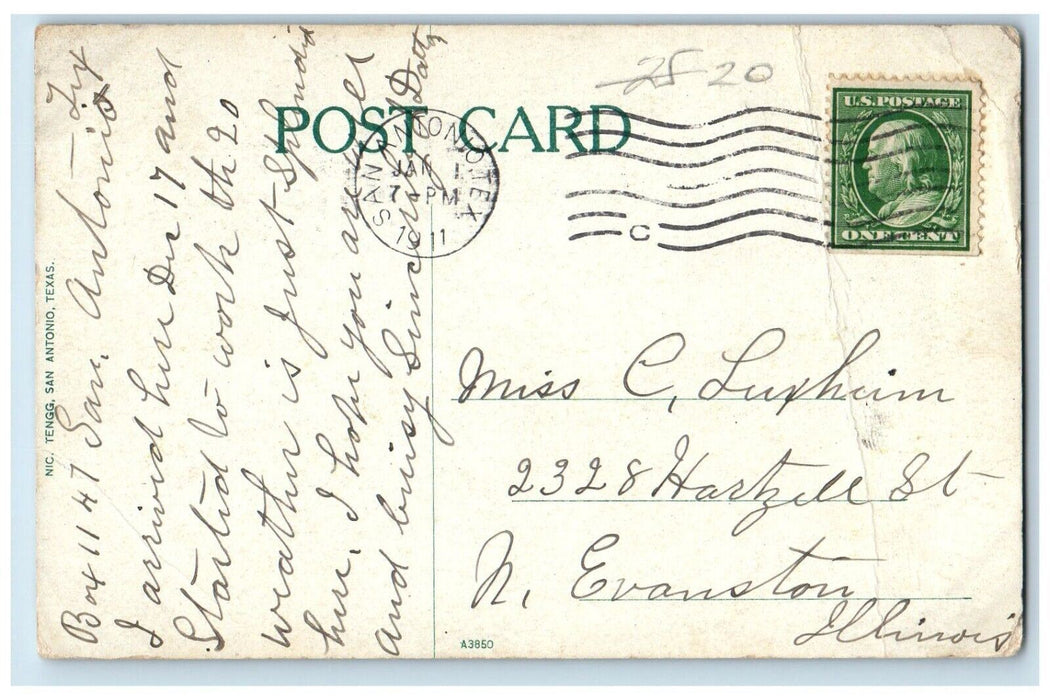 Box 1147 San. Antonio Tex
I arrived here De 17 and
Started to work the 20
weather is Just Spendid
here. I hope you are well
and buisy Sincerely Dotty
NIC. TENGG, SAN ANTONIO, TEXAS.
POST CARD
SAN ANTONIO, TEX.
JAN 1
7 - PM
1911
C
25 20
U.S. POSTAGE
ONE CENT
Miss C, Luxheim
2328 Hartzell St
N. Evanston
Illinois
A3850